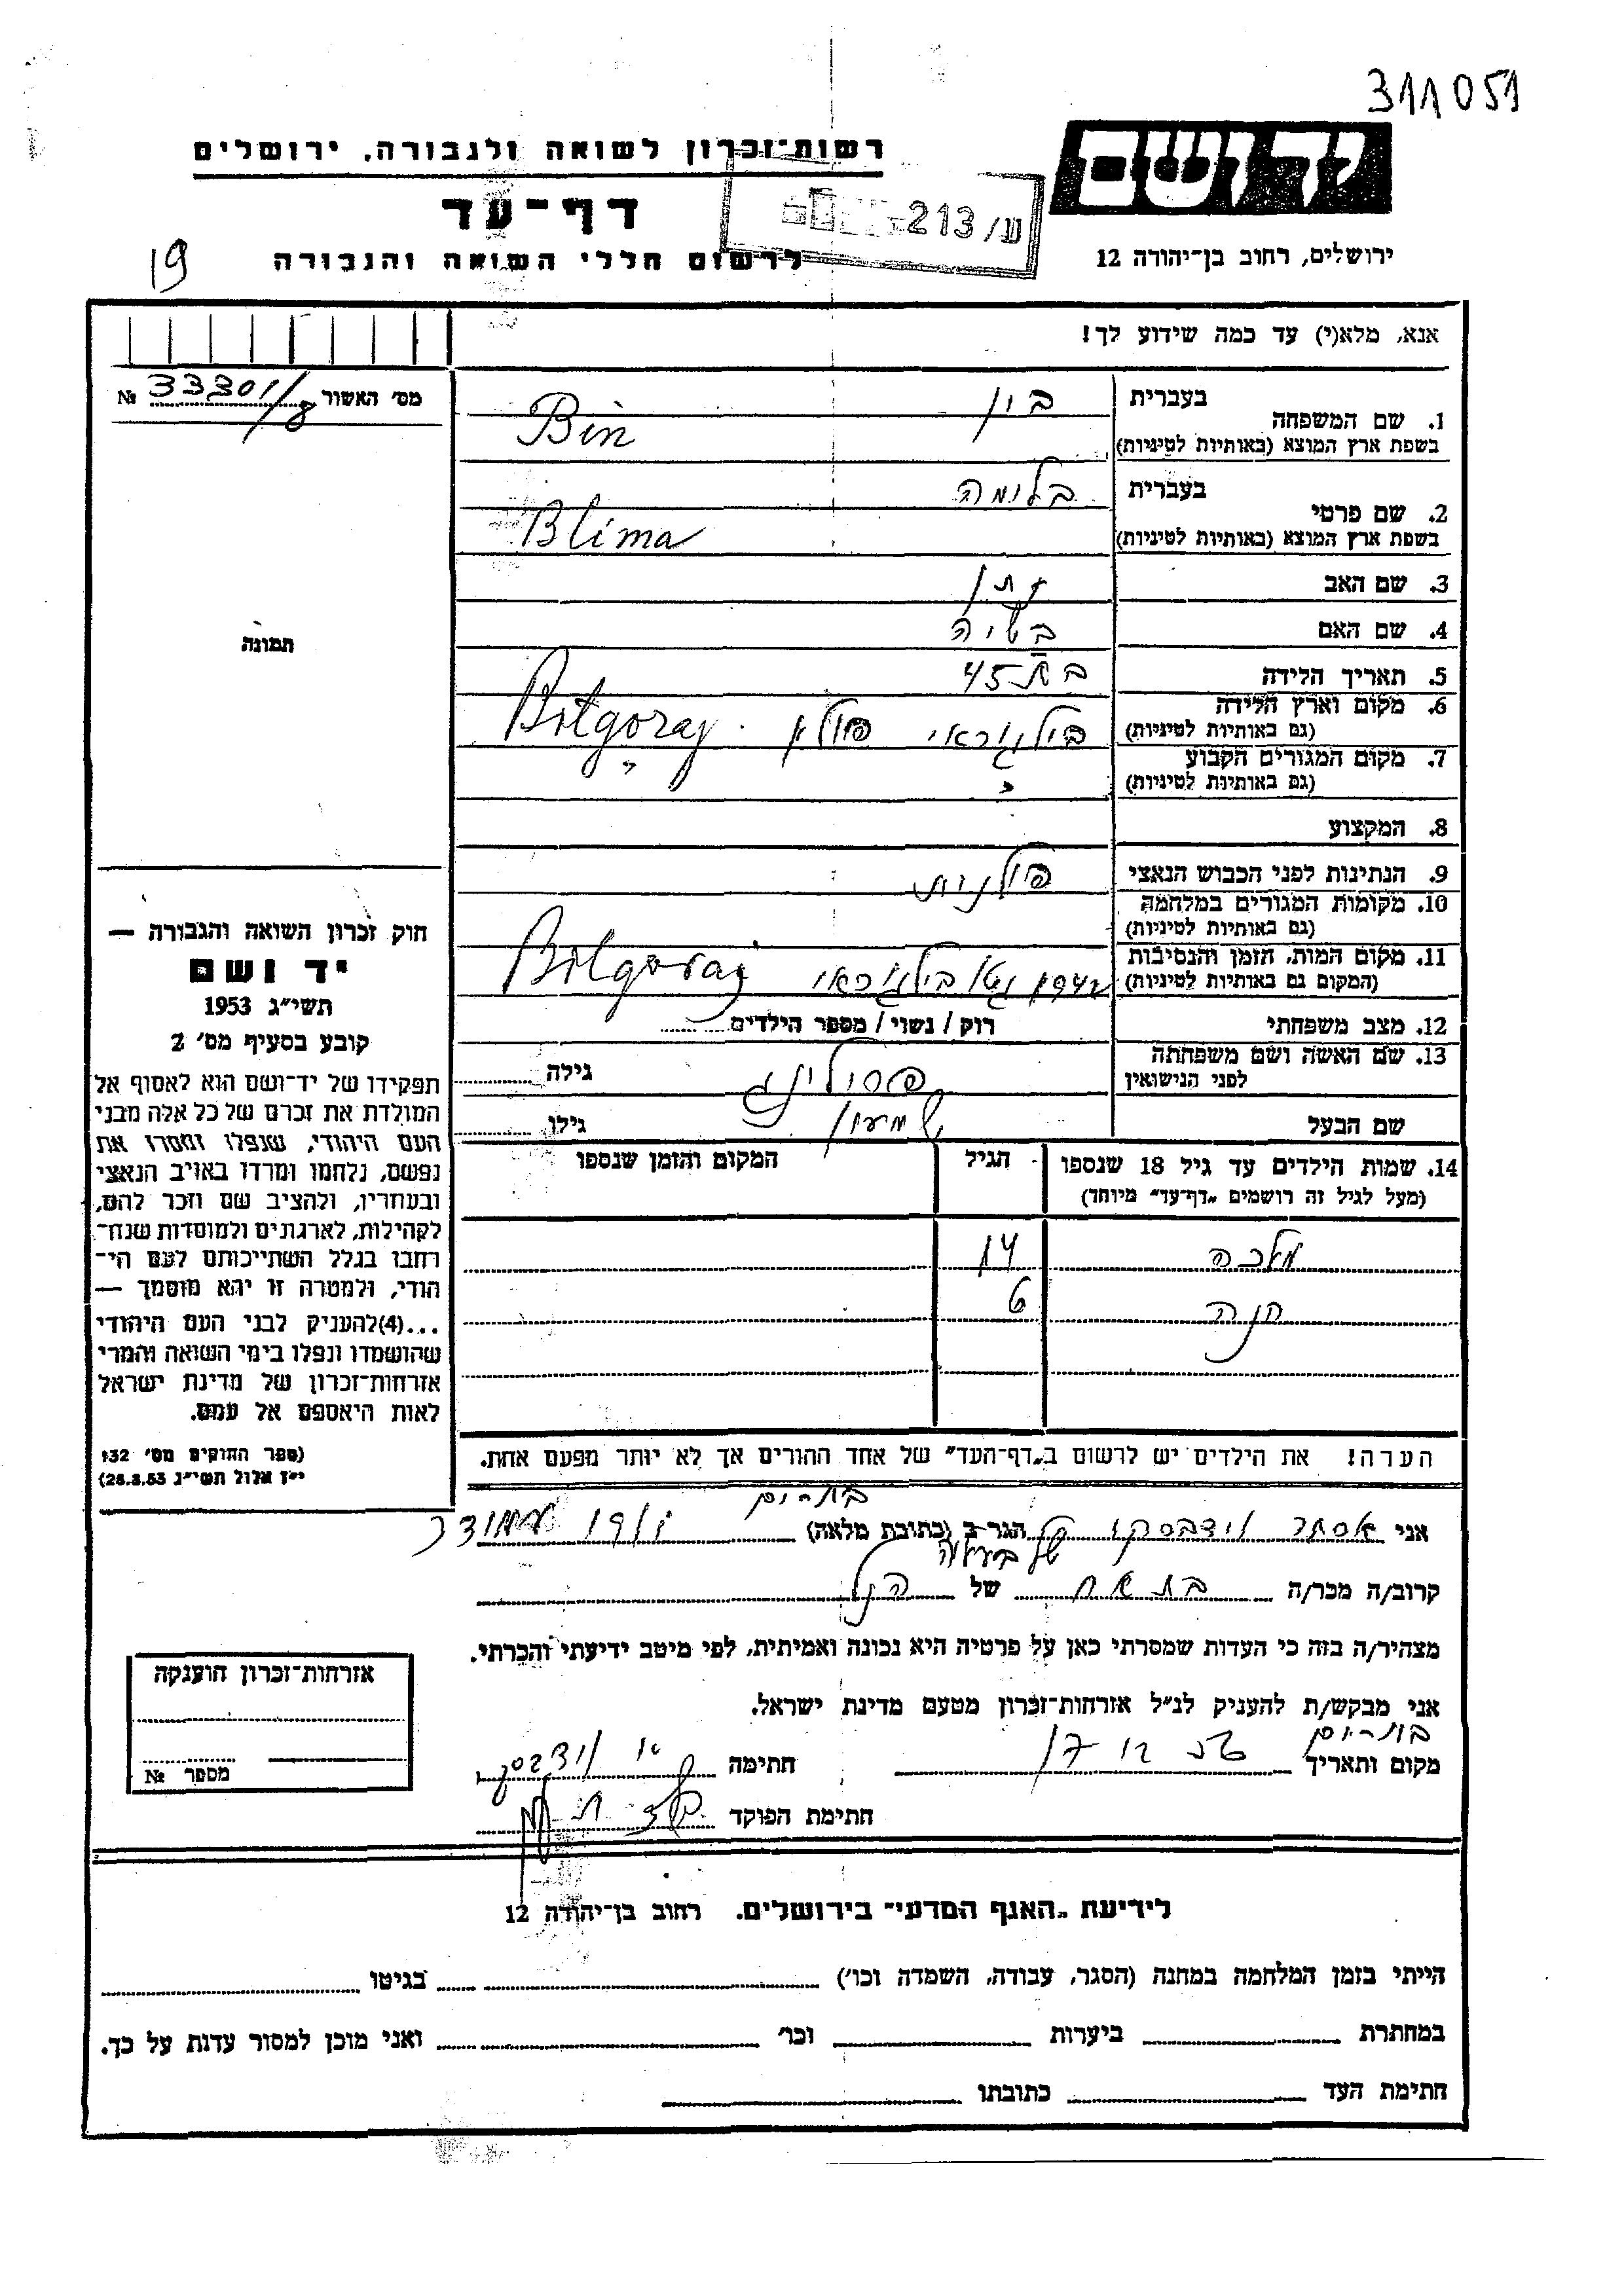 311051
יד ושם
רשות־זכרון לשואה ולגבורה, ירושלים
דף־עד
213/ע
19
לרשום חללי השואה והגבורה
ירושלים, רחוב בן־יהודה 12
אנא, מלא(י) עד כמה שידוע לך!
מס' האשור 33301/8 №
1. שם המשפחה בעברית בין
בשפת ארץ המוצא (באותיות לטיניות) Bin
2. שם פרטי בעברית בלומה
בשפת ארץ המוצא (באותיות לטיניות) Blima
3. שם האב נתן
4. שם האם בשיה
5. תאריך הלידה בת 45
6. מקום וארץ הלידה
(גם באותיות לטיניות) בילגוראי פולין Bilgoraj
7. מקום המגורים הקבוע
(גם באותיות לטיניות)
8. המקצוע
9. הנתינות לפני הכבוש הנאצי פולנית
10. מקומות המגורים במלחמה
(גם באותיות לטיניות)
11. מקום המות, הזמן והנסיבות
(המקום גם באותיות לטיניות) 1942 גטו בילגוראי Bilgoraj
12. מצב משפחתי רוק / נשוי / מספר הילדים
13. שם האשה ושם משפחתה
לפני הנישואין גילה
שם הבעל שמעון גילו
14. שמות הילדים עד גיל 18 שנספו הגיל המקום והזמן שנספו
(מעל לגיל זה רושמים „דף־עד" מיוחד)
מלכה 14
חנה 6
הערה! את הילדים יש לרשום ב„דף־העד" של אחד ההורים אך לא יותר מפעם אחת.
תמונה
חוק זכרון השואה והגבורה —
יד ושם
תשי"ג 1953
קובע בסעיף מס' 2
תפקידו של יד־ושם הוא לאסוף אל
המולדת את זכרם של כל אלה מבני
העם היהודי, שנפלו ומסרו את
נפשם, נלחמו ומרדו באויב הנאצי
ובעוזריו, ולהציב שם וזכר להם,
לקהילות, לארגונים ולמוסדות שנח־
רבו בגלל השתייכותם לעם הי־
הודי, ולמטרה זו יהא מוסמך —
...(4)להעניק לבני העם היהודי
שהושמדו ונפלו בימי השואה והמרי
אזרחות־זכרון של מדינת ישראל
לאות היאספם אל עמם.
(ספר החוקים מס' 132
י"ז אלול תשי"ג 28.8.53)
אני אסתר הגר ב (כתובת מלאה)
קרוב/ה מכר/ה של הנ"ל
מצהיר/ה בזה כי העדות שמסרתי כאן על פרטיה היא נכונה ואמיתית, לפי מיטב ידיעתי והכרתי.
אני מבקש/ת להעניק לנ"ל אזרחות־זכרון מטעם מדינת ישראל.
מקום ותאריך חתימה
חתימת הפוקד
אזרחות־זכרון הוענקה
מספר №
לידיעת „האגף המדעי" בירושלים. רחוב בן־יהודה 12
הייתי בזמן המלחמה במחנה (הסגר, עבודה, השמדה וכו') בגיטו
במחתרת ביערות וכו' ואני מוכן למסור עדות על כך.
חתימת העד כתובתו